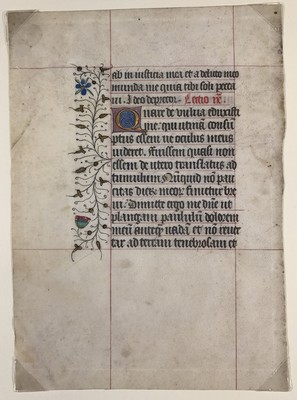 ab in iusticia mea et a delicto meo
munda me quia tibi soli pecca
ui. Ideo deprecor. Lectio
Quare de vulua eduxisti
me. qui utinā consū
ptus essem ne oculus meus
videret. ffuissem quasi non
essem de utero translatus ad
tumulum Nūquid nō pau
citas dieꝝ meoꝝ finietur bre
ui. Dimitte ergo me dn̄e ut
plangam paululū dolorem
meū anteq̄ vadā et nō reuer
tar ad terram tenebrosam et